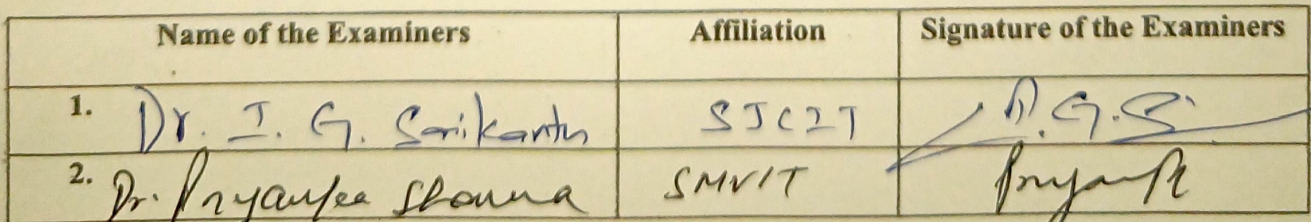 Name of the Examiners Affiliation Signature of the Examiners
1. Dr. I. G. Srikanth SJCIT
2. Dr. Priyanka Sharma SMVIT